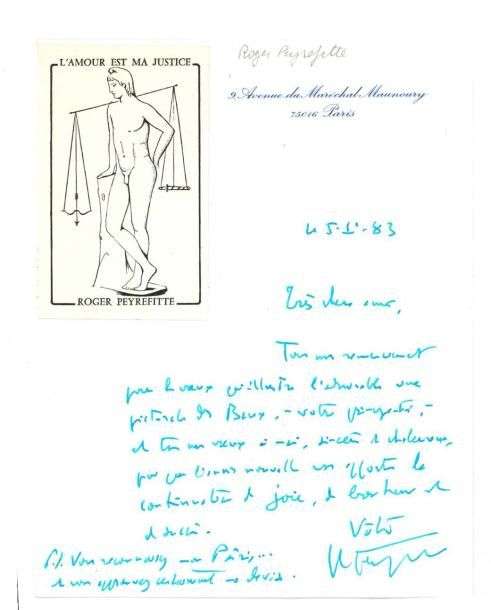 L'AMOUR EST MA JUSTICE
ROGER PEYREFITTE
Roger Peyrefitte
9. Avenue du Maréchal Maunoury
75016 Paris
le 5.1.-83
Très cher ami,
Tous mes remerciements
pour les vœux qu'illustre l'admirable vue
des Baux, - votre
et tous mes vœux à moi, sincères et chaleureux,
pour que l'année nouvelle vous apporte la
continuation de joie, de bonheur et
de succès.
Votre
P.S. Vous reconnaissez mon Pâris,...
et vous approuvez certainement ma devise.